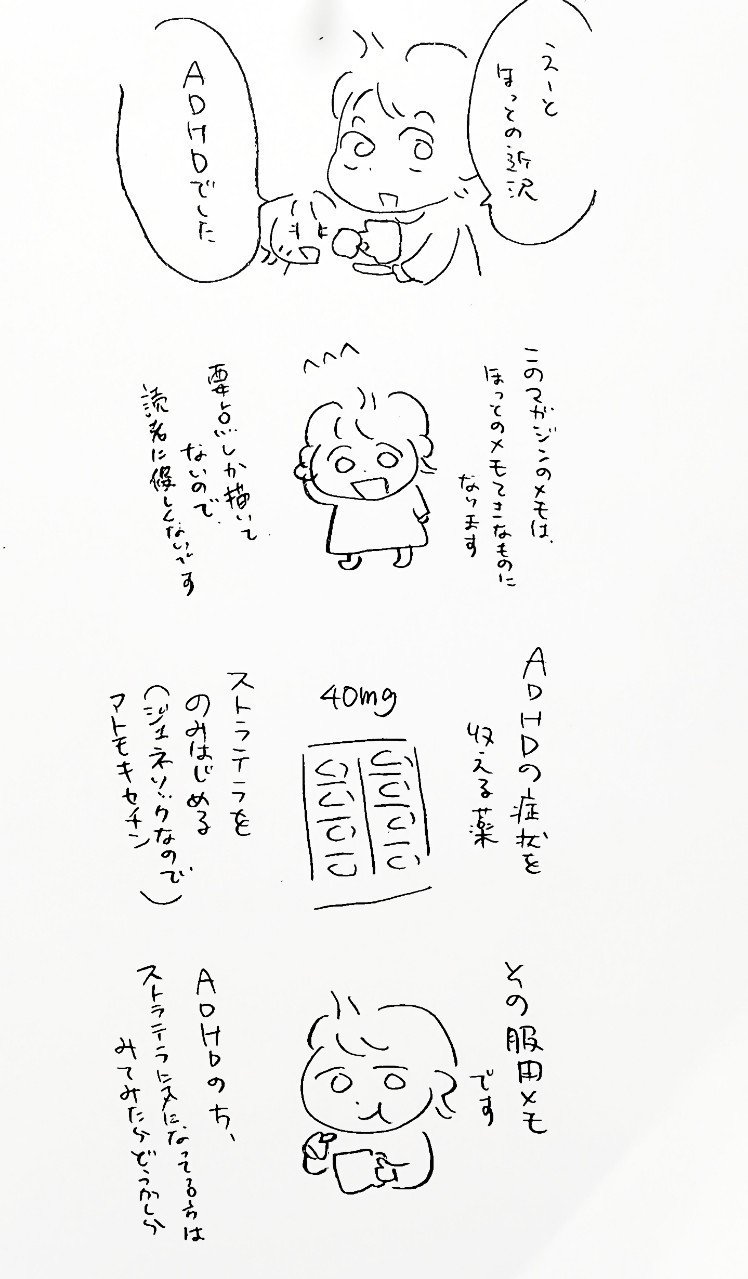 えーと
ほっての近況
ADHDでした
このマガジンのメモは、
ほってのメモてきなものに
なります
要点しか描いて
ないので
読者に優しくないです
ADHDの症状を
収える薬
40mg
ストラテラを
のみはじめる
(ジェネリックなので
マトモキセチン)
その服用メモ
です
ADHDの方、
ストラテラに気になってる方は
みてみたらどうかしら